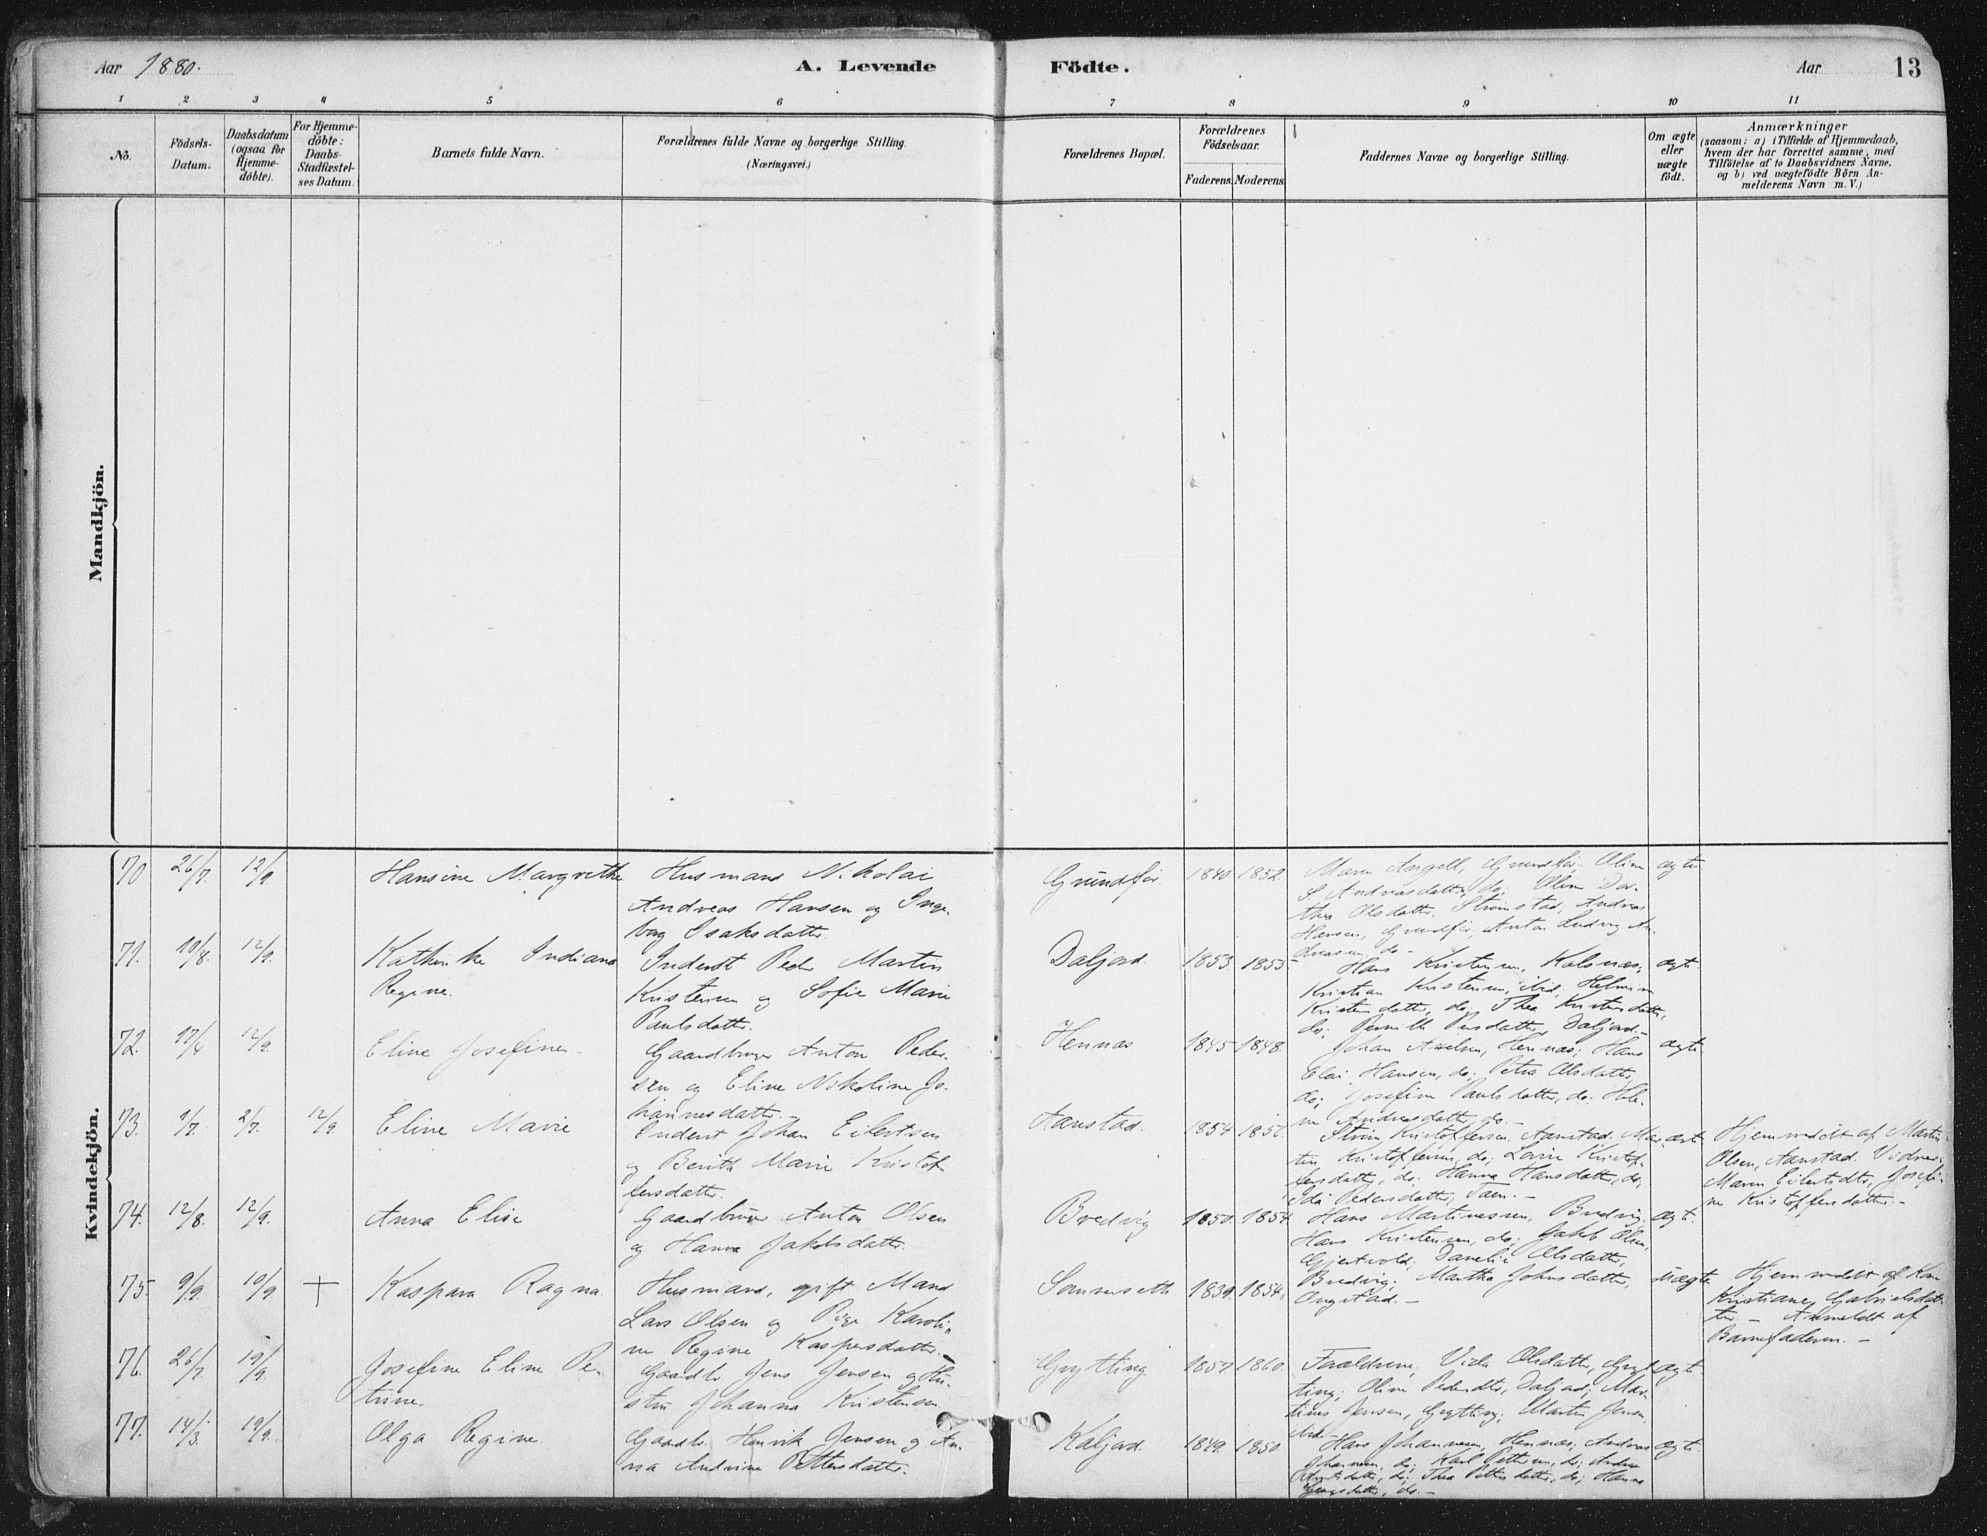 Aar 1880.
A. Levende Födte.
Aar 13
1 2 3 4 5 6 7 8 9 10 11
No.
Födsels-Datum.
Daabsdatum (ogsaa for Hjemme-döbte).
For Hjemme-döbte: Daabs-Stadfæstel-ses Datum.
Barnets fulde Navn.
Forældrenes fulde Navne og borgerlige Stilling.
(Næringsvei.)
Forældrenes Bopæl.
Forældrenes Födselsaar.
Faderens. Moderens.
Faddernes Navne og borgerlige Stilling.
Om ægte eller uægte födt.
Anmærkninger
(saasom: a) i Tilfælde af Hjemmedaab,
hvem der har forrettet samme, med
Tilföielse af to Daabsvidners Navne,
og b) ved uægtefödte Börn An-
melderens Navn m. V.)
Mandkjön.
Kvindekjön.
70 26/7. 12/9. Hansine Margrethe
Husmand Nikolai
Andreas Hansen og Inge-
borg Isaksdatter.
Grundfør 1840. 1852.
Maren Angell, Grundfør. Oline
S. Andreasdatter, do; Oline Dor-
thea Olsdatter, Strømstad, Andreas
Hansen, Grundfør, Anton Ludvig An-
dreasen, do-
ægte
71. 19/8. 12/9. Kathinka Indiana
Regine.
Inderst Peder Martin
Kristensen og Sofie Marie
Paulsdatter.
Daljord 1853. 1853.
Hans Kristensen, Kalsnæs;
Kristian Kristensen, ibid;
Kristensdatter, do; Thea Kristensdatter,
do; Pernille Persdatter, Daljord.-
ægte.
72. 17/4 12/9. Eline Josefine.
Gaardbruger Anton Peder-
sen og Eline Nikoline Jo-
hannesdatter.-
Hennæs 1845 1848.
Johan Axelsen, Hennæs; Hans
Elai Hansen, do; Petra Olsdatter,
do; Josefine Paulsdatter, do; Hele-
ne Andreasdatter, do-
ægte
73. 1/7. 2/7. 12/9. Eline Marie
Inderst Johan Eilertsen
og Berith Marie Kristof-
fersdatter.
Aanstad. 1854
Kristoffersen, Aanstad. Mar-
tin Kristoffersen, do; Lovise Kristof-
fersdatter, do; Hanna Hansdatter, do;
Ida Pedersdatter, Taen.-
ægte
Hjemmedøbt af Martin
Olsen, Aanstad. Vidner
Maren Eilertsdtr, Josefi-
ne Kristoffersdatter.-
74. 12/8. 12/9. Anna Elise
Gaardbruger Anton Olsen
og Hanna Jakobsdatter.
Bredvig 1850. 1854.
Hans Martinussen, Bredvig.
Hans Kristensen, do; Jakob Olsen,
Gjertvold; Danelie Olsdatter,
Bredvig; Martha Johnsdatter,
Ongstad.-
ægte.
75. 9/9. 19/9. + Kaspara Ragna.
Husmand, gift Mand
Lars Olsen og Pige Karoli-
ne Regine Kaspersdatter.
Sommerseth 1839. 1854.
uægte.
Hjemmedøbt af
Kristiane Gabrielsdat-
ter.- Anmeldt af
Barnefaderen.-
76. 26/7. 19/9. Josefine Eline Pe-
trine.
Gaardbr. Jens Jensen og Hu-
stru Johanna Kristensen
Grytting 1857 1860.
Forældrene, Vida Olsdatter, Gryt-
ting; Oline Pedersdtr, Daljord; Mar-
tines Jensen, Grytting; Martin Jensen,
ibid-
ægte.
77. 14/3. 19/9. Olga Regine.
Gaardbr. Henrik Jensen og An-
na Andrine Pettersdatter.
Kaljord. 1849. 1850.
Hans Johannesen, Hennæs; Andreas
Johannesen, do; Karl Pettersen, do; Andrea
do; Thea Pettersdatter, do; Hanna
do.-
ægte.